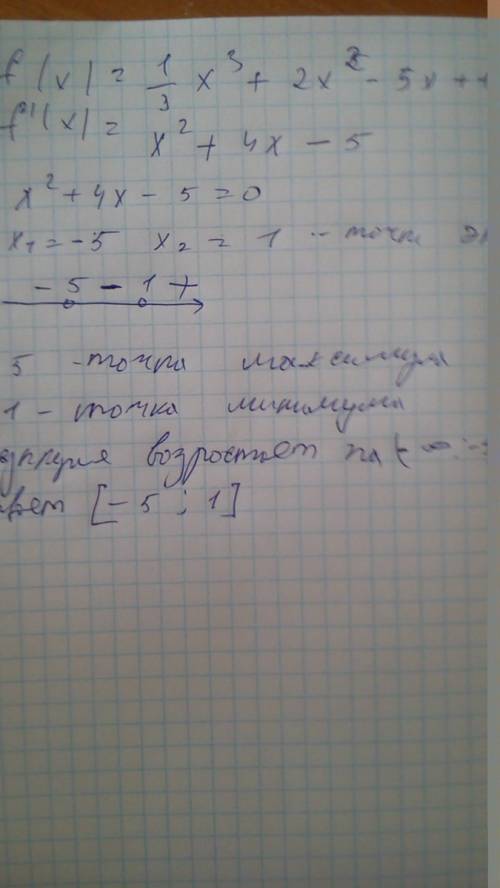 f(x) = 1/3 x³ + 2x² - 5x +
f'(x) = x² + 4x - 5
x² + 4x - 5 = 0
x₁ = -5 x₂ = 1 - точки
- 5 - 1 +
5 - точка максимума
1 - точка минимума
возростает на (-∞;
[-5 ; 1]